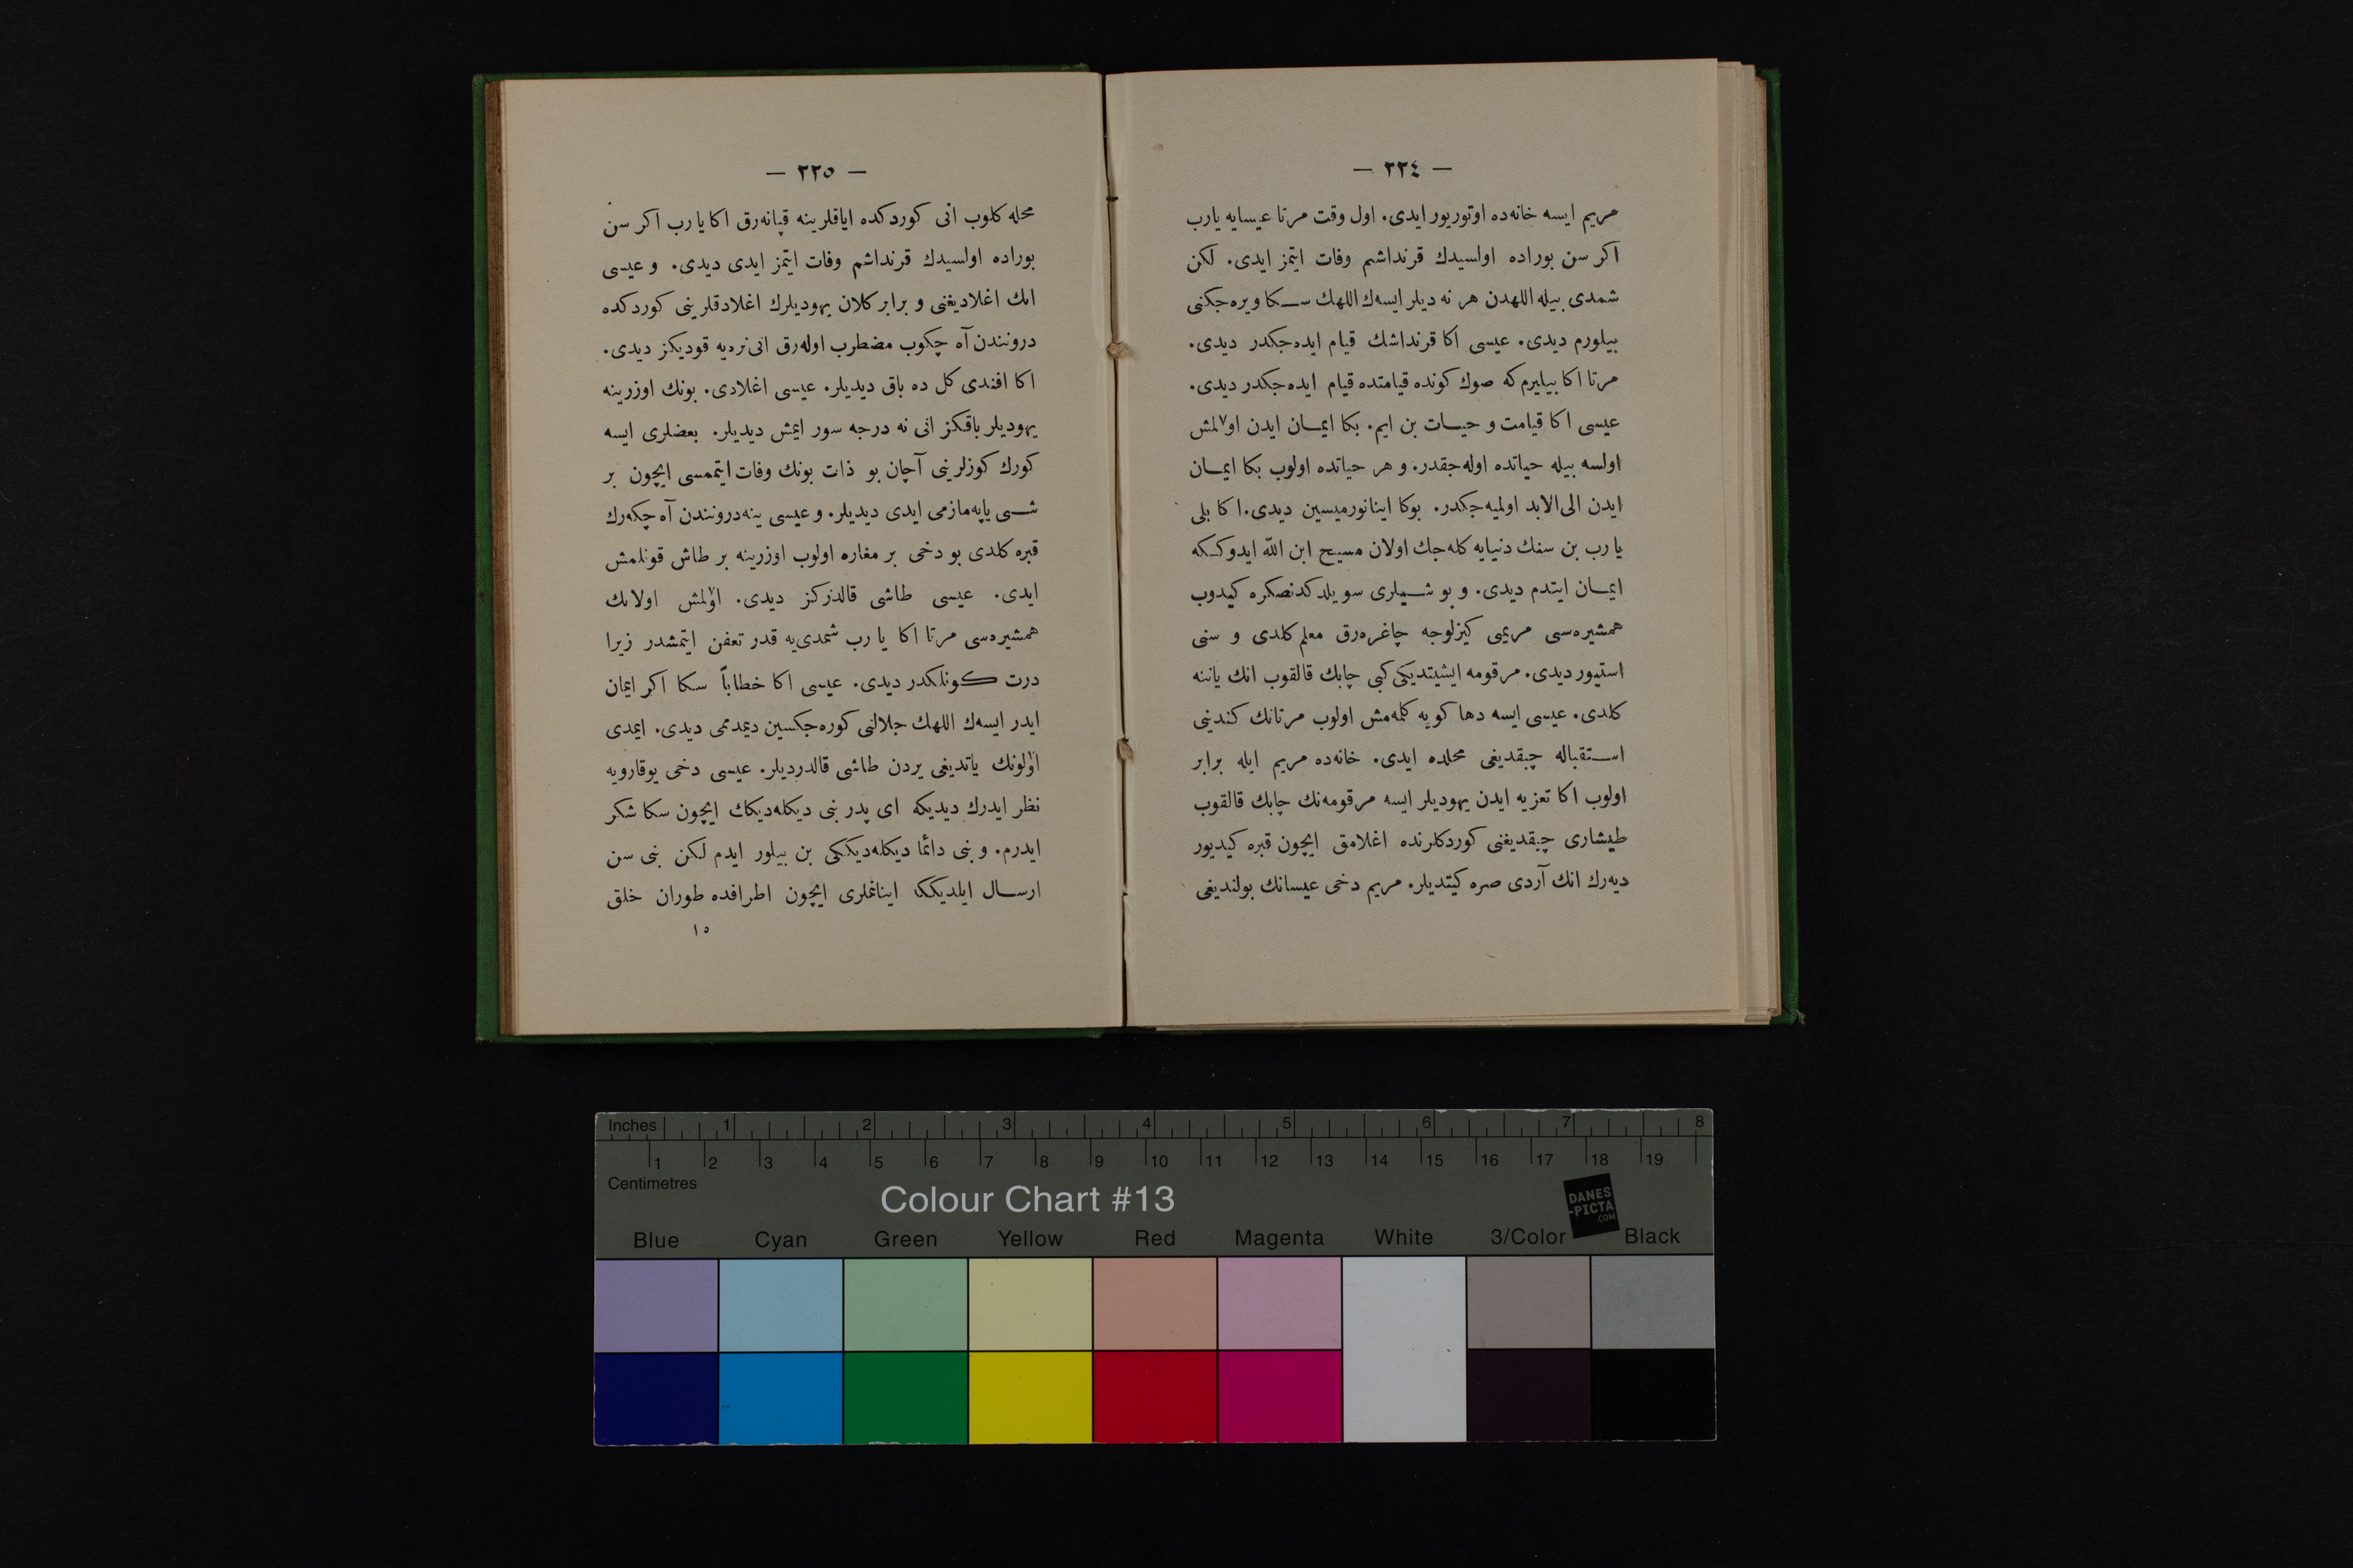 — ٢٢٤ —
مریم ایسه خانه‌ده اوتوریور ایدی. اول وقت مرتا عیسایه یارب
اكر سن بوراده اولسیدك قرنداشم وفات ایتمز ایدی. لكن
شمدی بیله اللهدن هر نه دیلر ایسه‌ك اللهك سكا ویره‌جكنی
بیلورم دیدی. عیسی اكا قرنداشك قیام ایده‌جكدر دیدی.
مرتا اكا بیلیرم كه صوك كونده قیامتده قیام ایده‌جكدر دیدی.
عیسی اكا قیامت و حیات بن ایم. بكا ایمان ایدن اولمش
اولسه بیله حیاتده اوله‌جقدر. و هر حیاتده اولوب بكا ایمان
ایدن الی‌الابد اولمیه‌جكدر. بوكا اینانورمیسین دیدی. اكا بلی
یا رب بن سنك دنیایه كله‌جك اولان مسیح ابن الله ایدوككه
ایمان ایتدم دیدی. و بو شیلری سویلدكدنصكره كیدوب
همشیره‌سی مریمی كیزلوجه چاغره‌رق معلم كلدی و سنی
استیور دیدی. مرقومه ایشیتدیكی كبی چابك قالقوب انك یاننه
كلدی. عیسی ایسه دها كویه كلمه‌مش اولوب مرتانك كندینی
استقباله چیقدیغی محلده ایدی. خانه‌ده مریم ایله برابر
اولوب اكا تعزیه ایدن یهودیلر ایسه مرقومه‌نك چابك قالقوب
طیشاری چیقدیغنی كوردكلرنده اغلامق ایچون قبره كیدیور
دیه‌رك انك آردی صره كیتدیلر. مریم دخی عیسانك بولندیغی
— ٢٢٥ —
محله كلوب انی كوردكده ایاقلرینه قپانه‌رق اكا یا رب اكر سن
بوراده اولسیدك قرنداشم وفات ایتمز ایدی دیدی. و عیسی
انك اغلادیغنی و برابر كلان یهودیلرك اغلادقلرینی كوردكده
دروننندن آه چكوب مضطرب اوله‌رق انی نره‌یه قودیكز دیدی.
اكا افندی كل ده باق دیدیلر. عیسی اغلادی. بونك اوزرینه
یهودیلر باقكز انی نه درجه سور ایمش دیدیلر. بعضلری ایسه
كورك كوزلرینی آچان بو ذات بونك وفات ایتممسی ایچون بر
شی یاپه‌مازمی ایدی دیدیلر. و عیسی ینه دروننندن آه چكه‌رك
قبره كلدی بو دخی بر مغاره اولوب اوزرینه بر طاش قونلمش
ایدی. عیسی طاشی قالدزكز دیدی. اولمش اولانك
همشیره‌سی مرتا اكا یا رب شمدی‌یه قدر تعفن ایتمشدر زیرا
درت كونلكدر دیدی. عیسی اكا خطاباً سكا اكر ایمان
ایدر ایسه‌ك اللهك جلالنی كوره‌جكسین دیمدممی دیدی. ایمدی
اولونك یاتدیغی یردن طاشی قالدردیلر. عیسی دخی یوقارویه
نظر ایدرك دیدیكه ای پدر بنی دیكله‌دیكك ایچون سكا شكر
ایدرم. و بنی دائما دیكله‌دیككی بن بیلور ایدم لكن بنی سن
ارسال ایلدیككه اینانملری ایچون اطرافده طوران خلق
١٥
Inches 1 2 3 4 5 6 7 8
1 2 3 4 5 6 7 8 9 10 11 12 13 14 15 16 17 18 19
Centimetres
Colour Chart #13
DANES
-PICTA
.COM
Blue Cyan Green Yellow Red Magenta White 3/Color Black